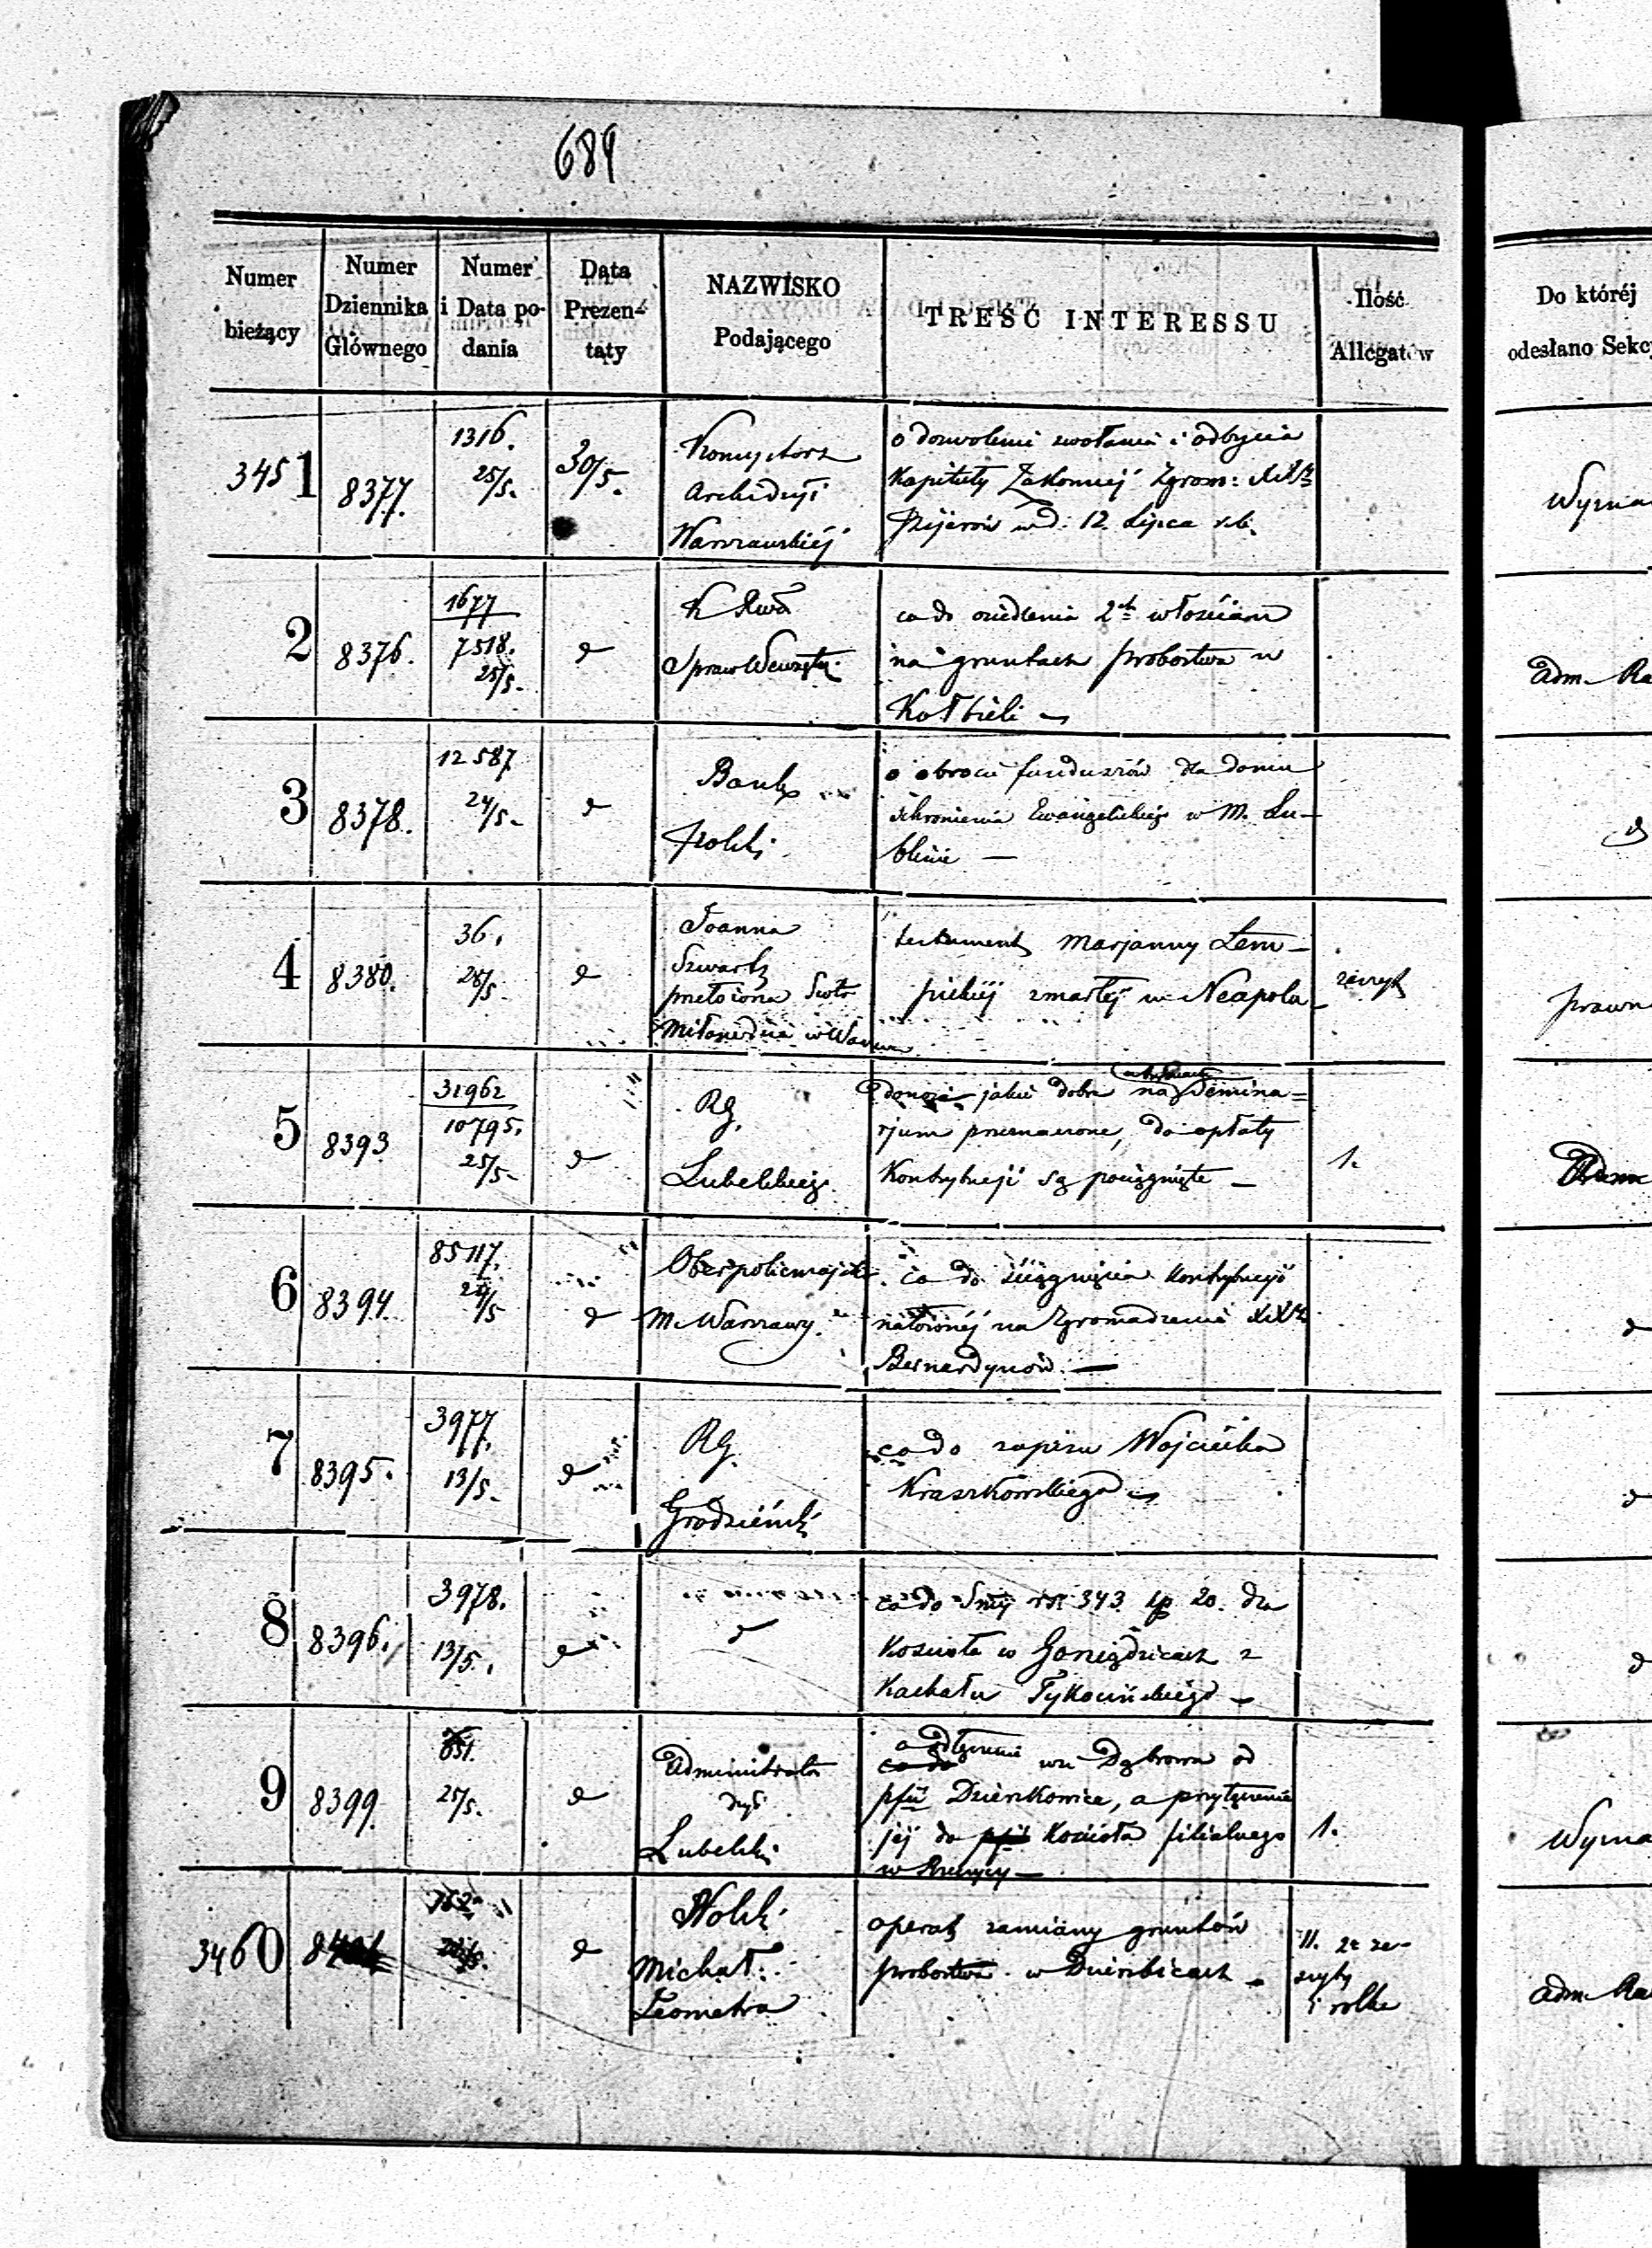 689
Numer bieżący
Numer Dziennika Głównego
Numer i Data podania
Data Prezentaty
NAZWISKO Podającego
TREŚĆ INTERESSU
Ilość Allegatów
Do któréj odesłano Sekc
3451
8377.
1316.
25/5.
30/5.
Konsystorz
Archidyi
Warszawskiéj
o dozwolenie zwołania i odbycia
Kapituły Zakonnéj Zgrom: XX
Pijarów w d. 12. Lipca r.b.
2
8376.
1677
7518.
25/5.
d
K Rwa
Spraw Wewnętz.
co do osiedlenia 2ch włościan
na gruntach probostwa w
Kołbieli –
Adm. Ra
3
8378.
12587
24/5.
d
Bank
Polski
o obrocie funduszów dla domu
schronienia Ewangelickiego w M. Lu-
blinie —
d
4
8380.
36.
28/5.
d
Joanna
Szwartz
przełożona Siostr
Miłosierdzia w Warsza
testament Marjanny Lem-
pickiéj zmarłéj w Neapolu
zeszyt
prawn
5
8393
31962
10795.
25/5.
d
RG.
Lubelskiego
donosi jakie dobra na Semina=
rjum przeznaczone, do opłaty
Kontrybucji są pociągnięte –
1.
6
8394.
85117.
24/5
d
Oberpolicmajster
M. Warszawy.
co do ściągnięcia Kontrybucji
nałożonéj na Zgromadzenie XX
Bernardynów. —
d
7
8395.
3977.
13/5.
d
RG.
Grodzieński
co do zapisu Wojciecha
Kraszkowskiego –
d
8
8396.
3978.
13/5.
d
d
co do Smy rsr 343 kp 20. dla
Kościoła w Goniądzicach z
Kachału Tykocińskiego –
d
9
8399
651.
25/5.
d
Administrator
dyi
Lubelski
o odłączenie wsi Dąbrowa od
pfii Dzierzkowice, a przyłączenie
jéj do Kościoła filialnego
w
1.
3460
d
Wolski
Michał
Geometra
operat zamiany gruntów
probostwa w Dzierzbicach –
11. 2e ze-
szyty
i rolka
Adm. Ra